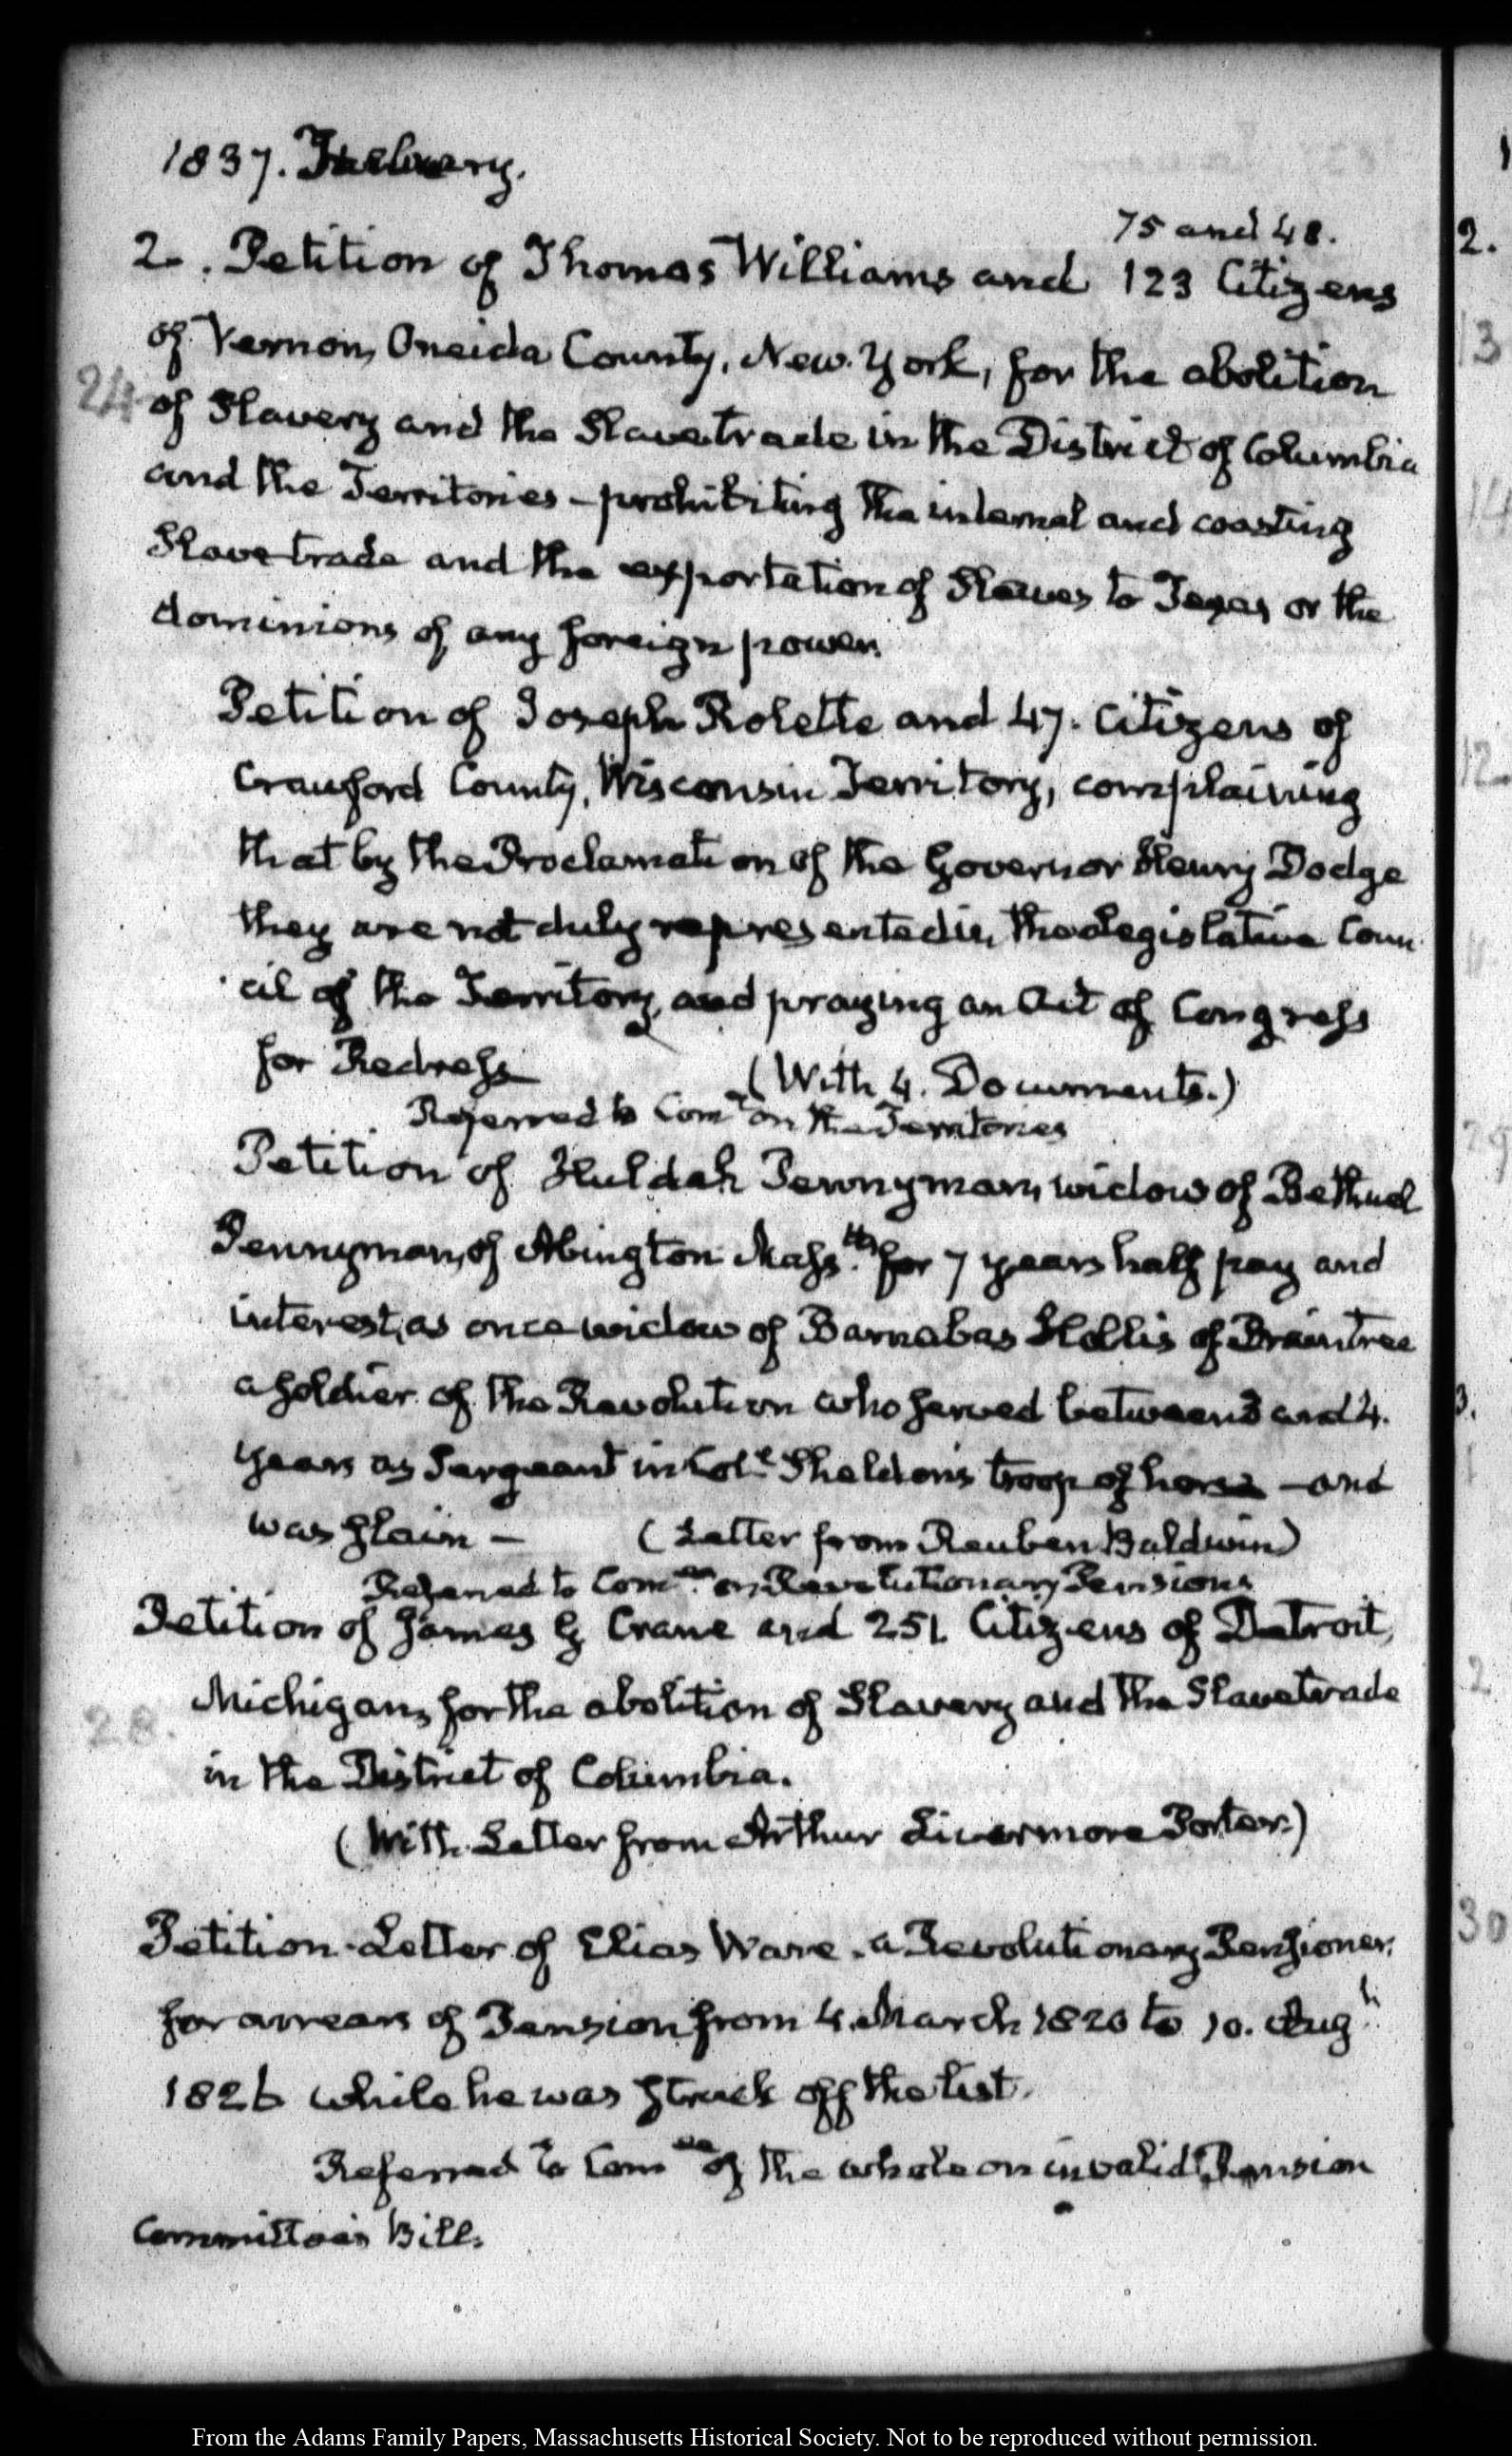 1837. February.
75 and 48.
2. Petition of Thomas Williams and 123 Citizens
of Vernon, Oneida County, New-York, for the abolition
24
of Slavery and the Slave trade in the District of Columbia
and the Territories – prohibiting the internal and coasting
Slave trade and the exportation of Slaves to Texas or the
dominions of any foreign power.
Petition of Joseph Rolette and 47. Citizens of
Crawford County, Wisconsin Territory, complaining
that by the Proclamation of the Governor Henry Dodge
they are not duly represented in the Legislative Coun
cil of the Territory, and praying an Act of Congress
for Redress (With 4. Documents.)
Referred to Com.ee on the Territories
Petition of Huldah Pennyman, widow of Bethuel
Pennyman, of Abington Mass.tts for 7 years half pay and
interest, as once widow of Barnabas Hollis of Braintree
a soldier of the Revolution who served between 3 and 4.
years as Sergeant in Col.l Sheldon's troop of horse – and
was slain – (Letter from Reuben Baldwin)
Referred to Com.ee on Revolutionary Pensions
Petition of James G Crane and 251 Citizens of Detroit,
Michigan, for the abolition of Slavery and the Slave trade
28.
in the District of Columbia.
(With Letter from Arthur Livermore Porter.)
Petition-Letter of Elias Ware. a Revolutionary Pensioner,
for arrears of Pension from 4. March 1820 to 10. Aug.t
1826 while he was struck off the list.
Referred to Com.ee of the whole on invalid Pension
Committee's Bill.
2.
13
14
12
29
3.
2
30
From the Adams Family Papers, Massachusetts Historical Society. Not to be reproduced without permission.